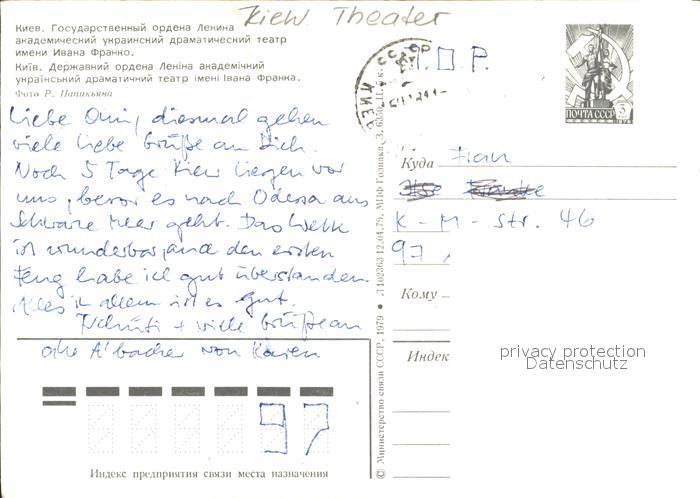 Kiew Theater
Киев. Государственный ордена Ленина
академический украинский драматический театр
имени Ивана Франко.
Київ. Державний ордена Леніна академічний
український драматичний театр імені Івана Франка.
Фото Р. Папикьяна
Liebe Omi, diesmal gehen
viele liebe Grüße an Dich.
Noch 5 Tage Kiew liegen vor
uns, bevor es nach Odessa ans
Schwarze Meer geht. Das Wetter
ist wunderbar, und den ersten
Flug habe ich gut überstanden.
Alles in allem ist es gut.
Tschüß + viele Grüße an
alle A'bacher von Karen
П.О.Р.
ПОЧТА СССР 3
1976
Куда Frau
K - M - Str. 46
97
Кому
Индекс
privacy protection
Datenschutz
97
Индекс предприятия связи места назначения
© Министерство связи СССР, 1979 • Л102363 12.04.79. МПФ Гознака. З.